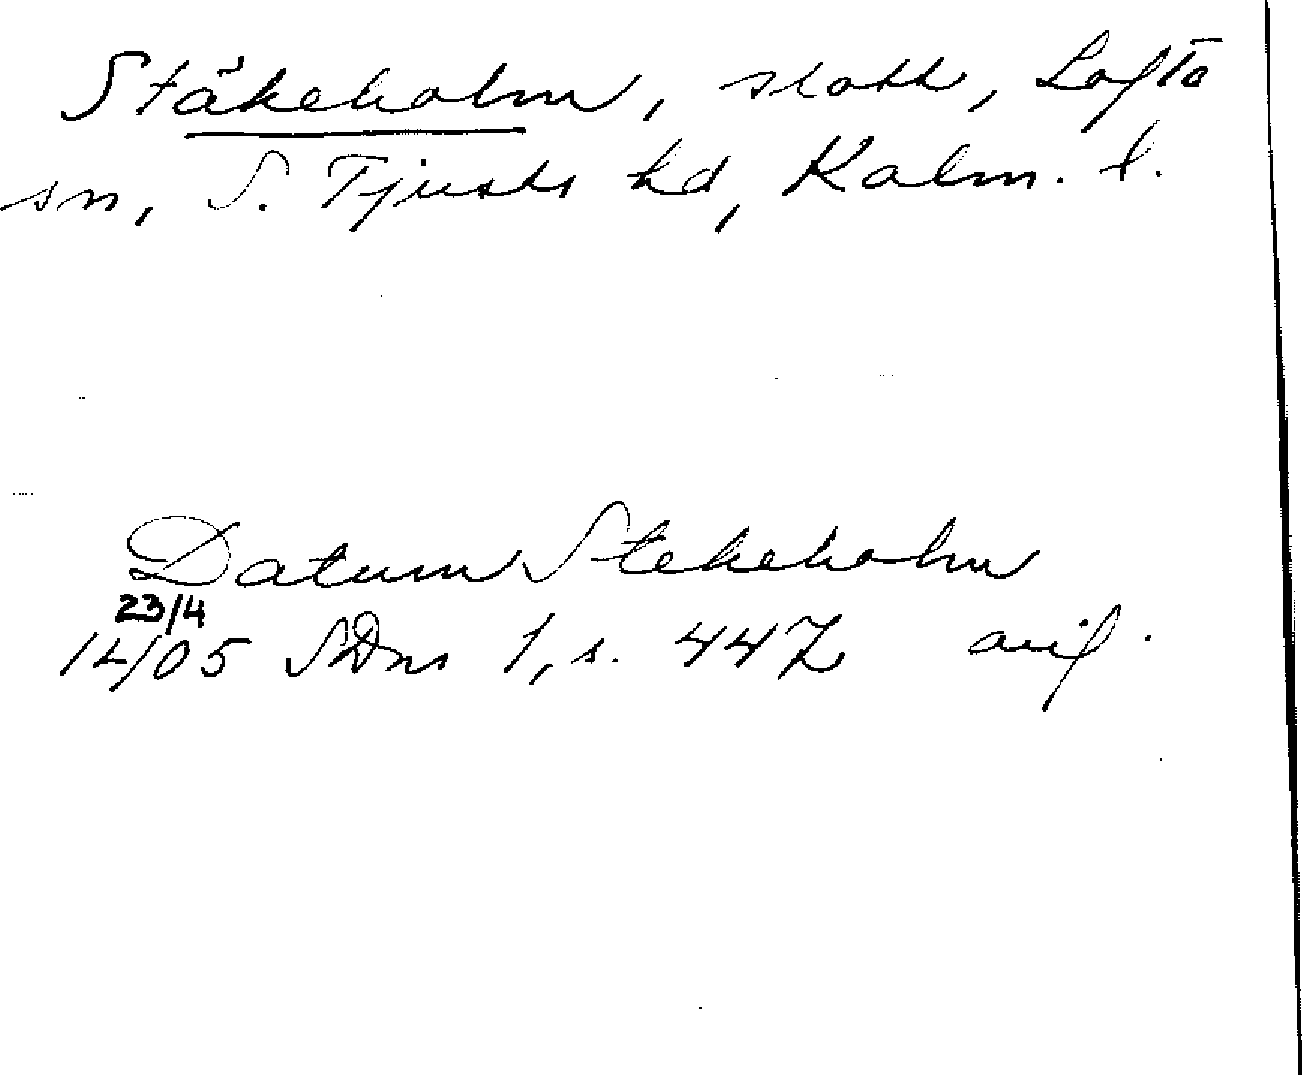 Stäkeholm, slott, Lofta
sn, S. Tjusts hd, Kalm. l.
Datum Stekeholm
23/4
14/05 SDns 1, s. 447 avs.